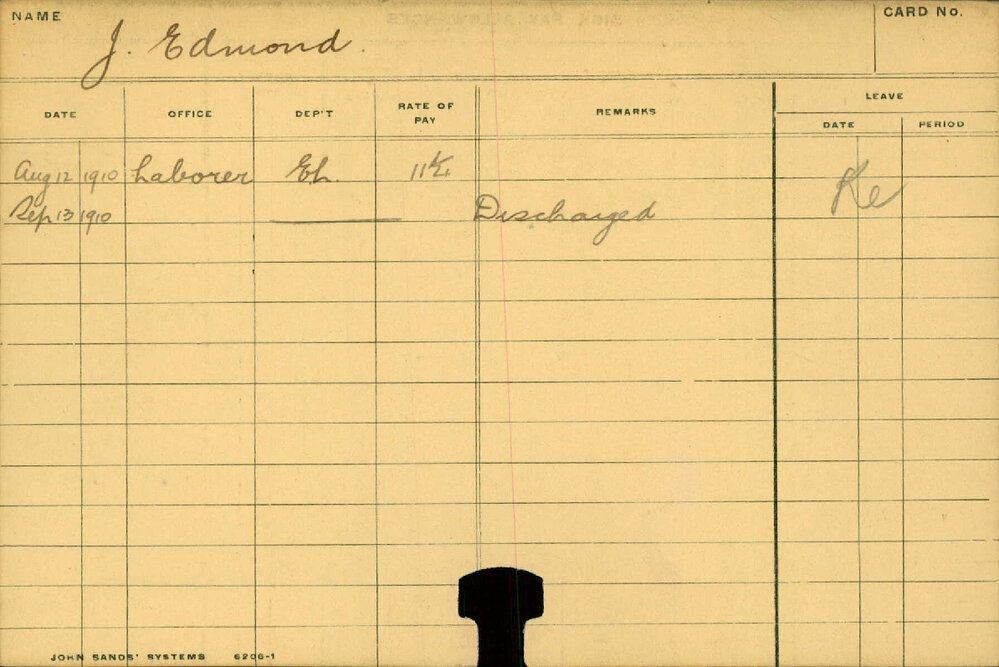 NAME
CARD No.
J. Edmond.
DATE OFFICE DEP'T RATE OF PAY REMARKS LEAVE
DATE PERIOD
Aug 12 1910 Laborer
Sep 13 1910 Discharged
JOHN SANDS' SYSTEMS 6206-1